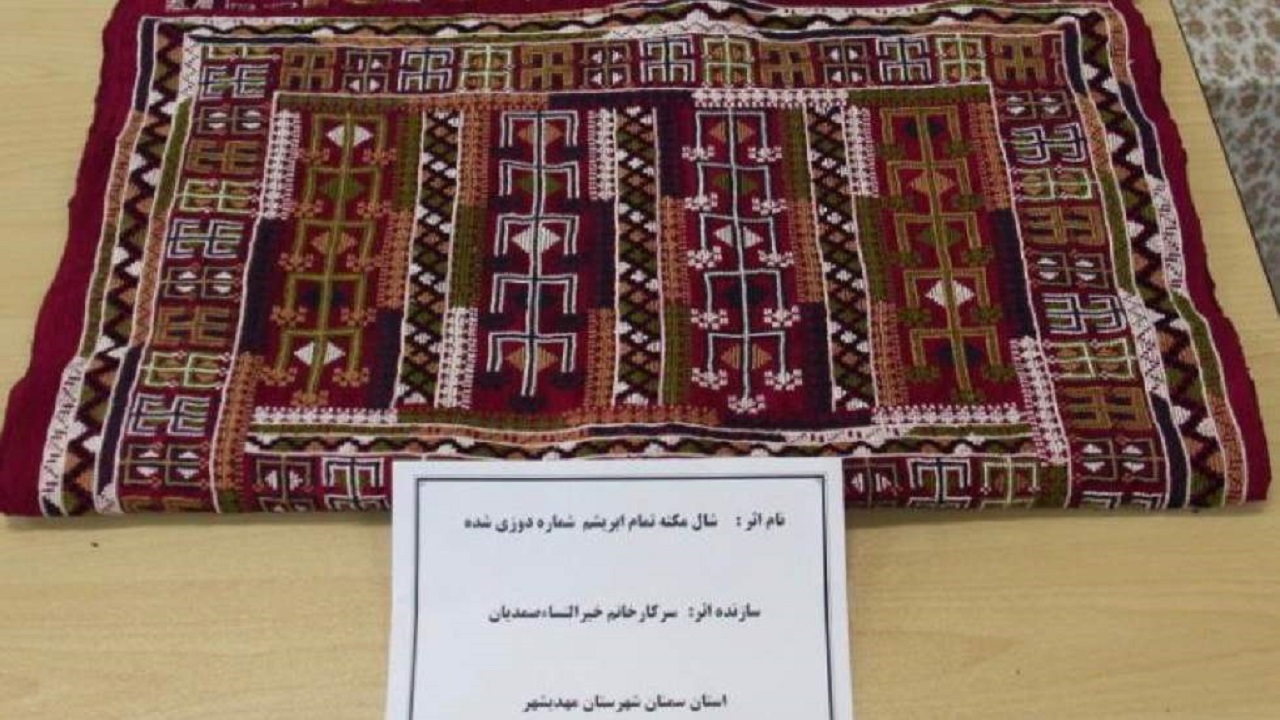 نام اثر : شال مکنه تمام ابریشم شماره دوزی شده
سازنده اثر: سرکارخانم خیرالنساءصمدیان
استان سمنان شهرستان مهدیشهر